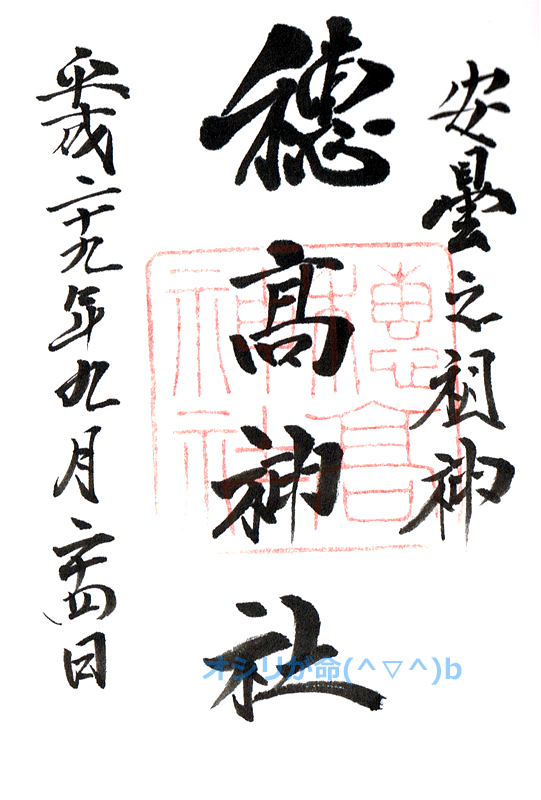 安曇之祖神
穂髙神社
平成二十九年九月二十四日
穂高神社
オシリが命(^▽^)b